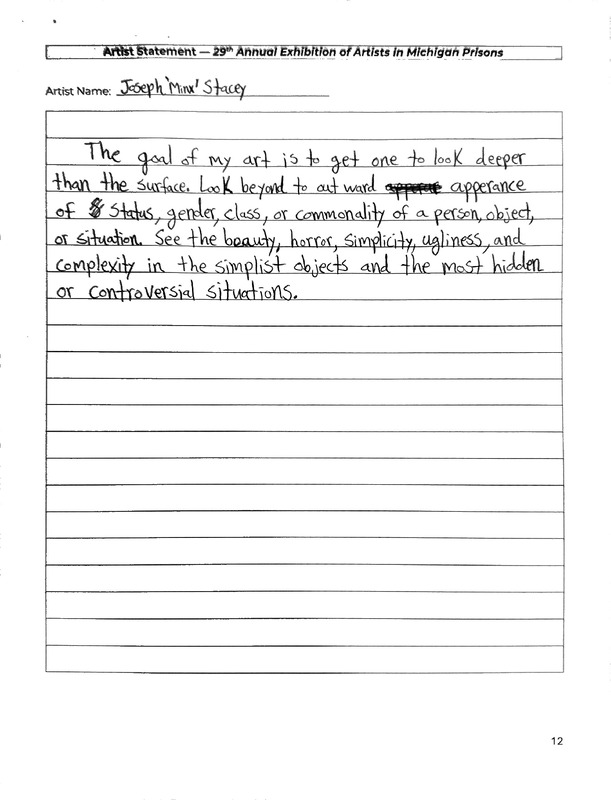 Artist Statement — 29th Annual Exhibition of Artists in Michigan Prisons
Artist Name: Joseph 'Minx' Stacey
The goal of my art is to get one to look deeper
than the surface. Look beyond to out ward apperance
of Status, gender, class, or commonality of a person, object,
or situation. See the beauty, horror, simplicity, ugliness, and
complexity in the simplist objects and the most hidden
or controversial situations.
12